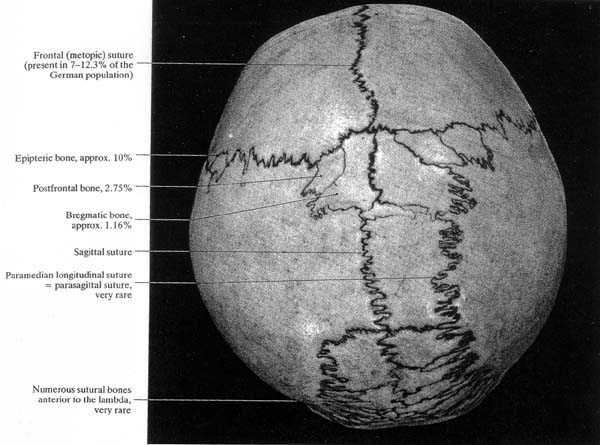 Frontal (metopic) suture
(present in 7–12.3% of the
German population)
Epipteric bone, approx. 10%
Postfrontal bone, 2.75%
Bregmatic bone,
approx. 1.16%
Sagittal suture
Paramedian longitudinal suture
= parasagittal suture,
very rare
Numerous sutural bones
anterior to the lambda,
very rare